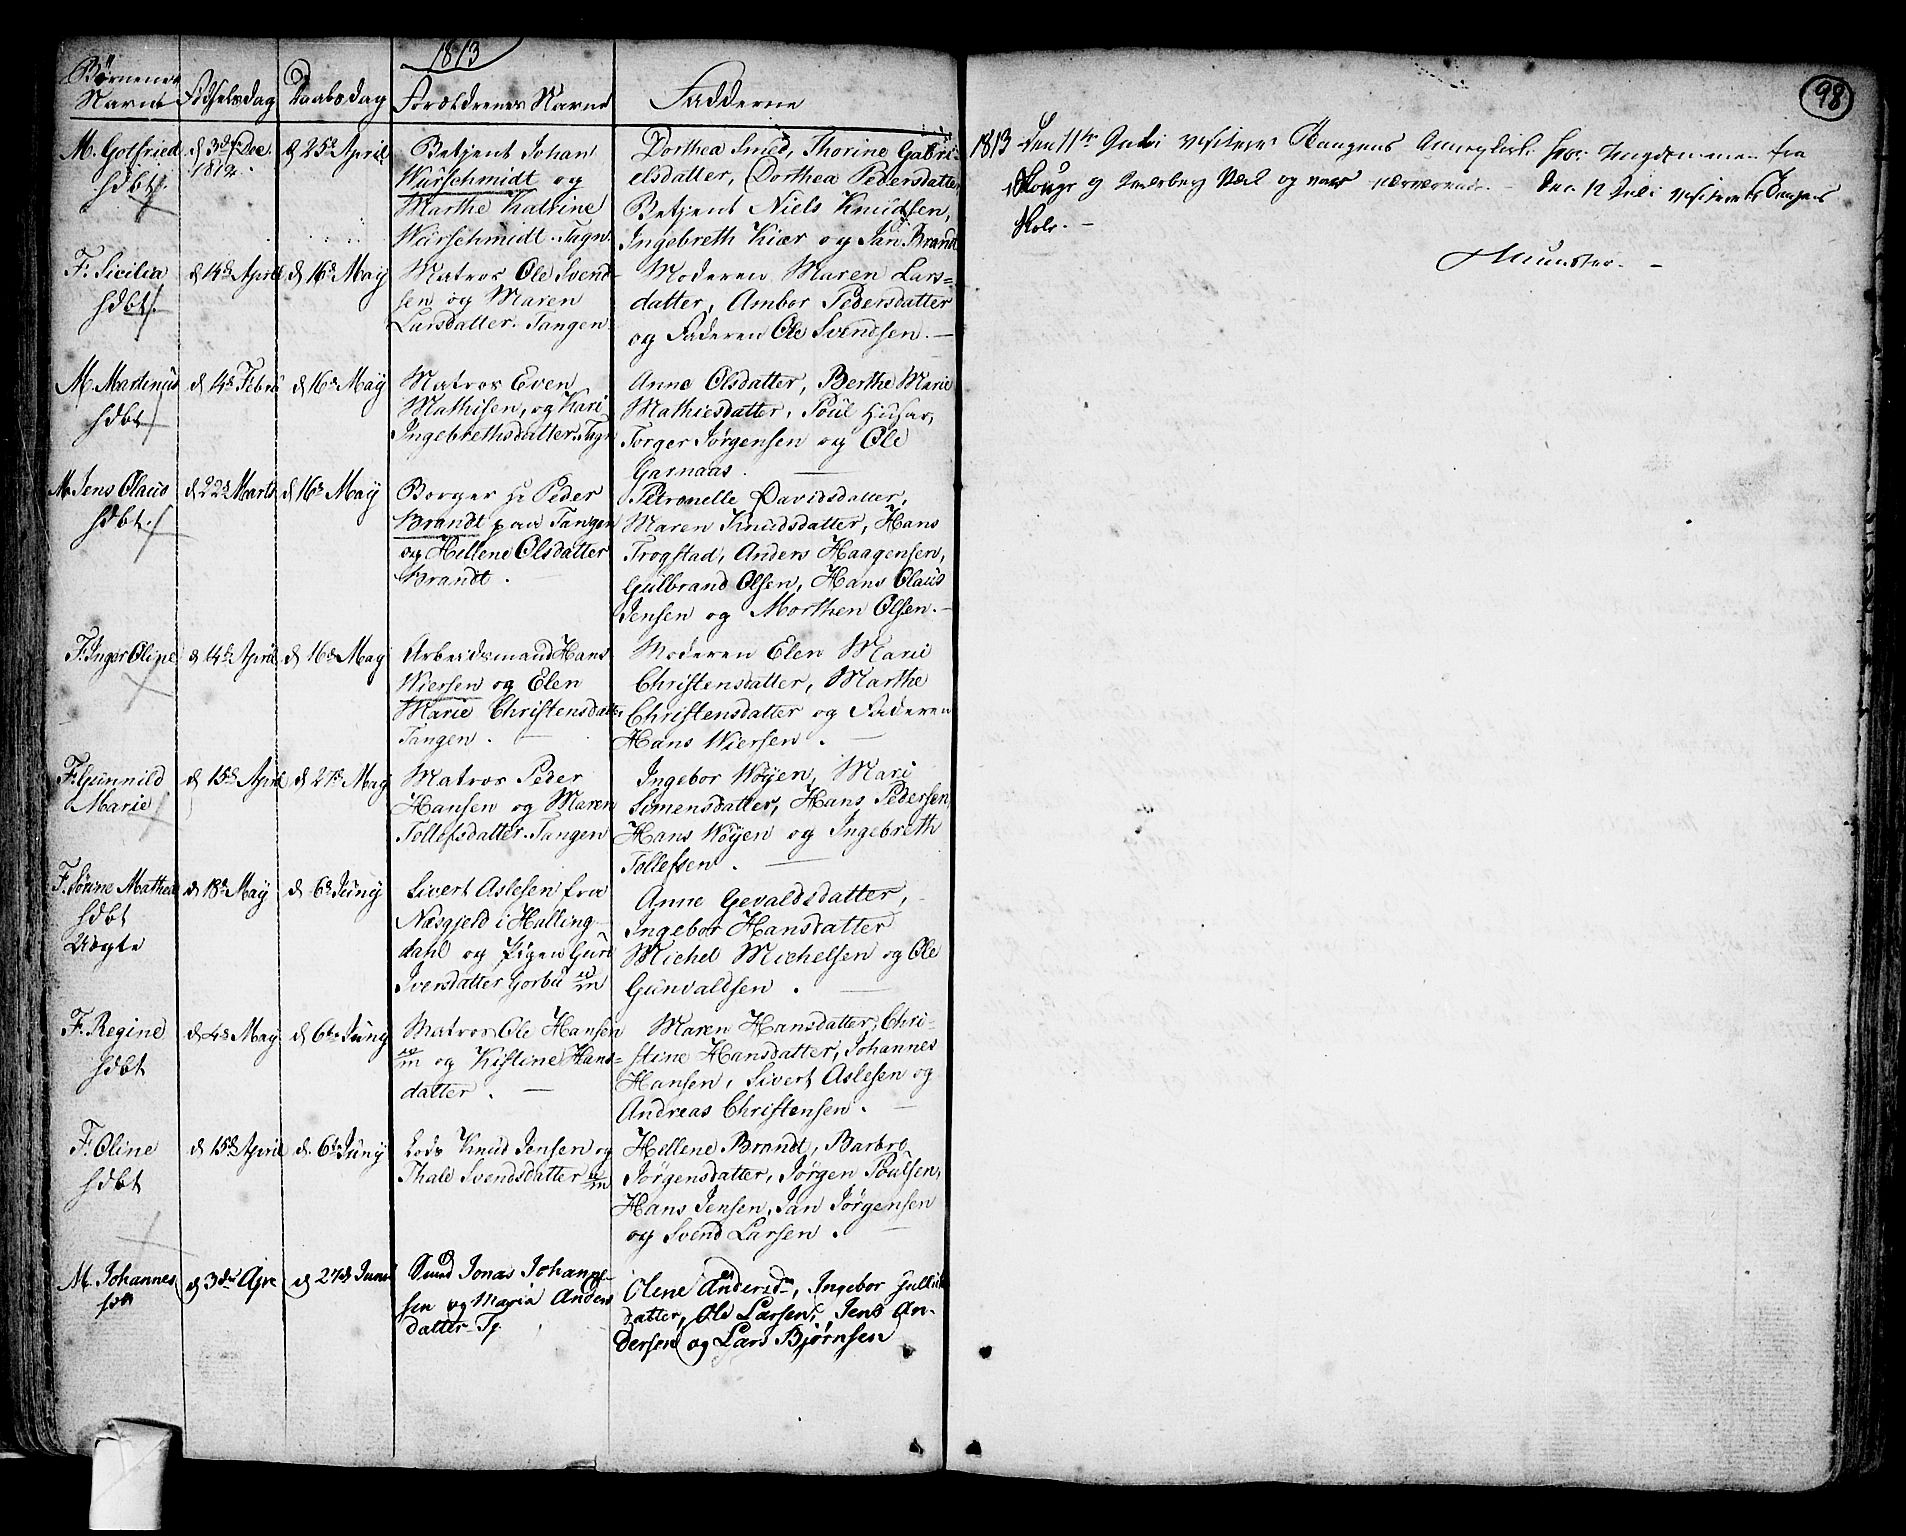 1813
Børnenes Navne
Fødselsdag
Daabsdag
Foreldrenes Navne
Fadderne
M. Gotfried
hdbt
d 3de Dec.
1812.
d 25de April
Betjent Johan
Würschmidt og
Marthe Katrine
Würschmidt. Tagn.
Dorthea Smed, Thorine Gabri-
elsdatter, Dorthea Pedersdatter,
Betjent Niels Knudsen,
Ingebreth Kiær og Jan Brandt
F. Sicilia
hdbt
d 14de April
d 16de May
Matros Ole Svend-
sen og Maren
Larsdatter. Tangen
Moderen Maren Lars-
datter, Ambor Pedersdatter
og Faderen Ole Svendsen. —
M. Martinus
hdbt
d 14de Febru
d 16de May
Matros Even
Mathisen, og Kari
Ingebrethsdatter. Tagn
Anne Olsdatter, Berthe Marie
Mathiesdatter, Poul Husar,
Torger Jørgensen og Ole
Garnaas. —
M. Jens Claus
hdbt.
d 22de Marts
d 16de May
Borger Hr Peder
Brandt paa Tangen
og Hellene Olsdatter
Brandt. —
Petronelle Davidsdatter,
Maren Knudsdatter, Hans
Trogstad, Anders Haagensen,
Gulbrand Olsen, Hans Claus
Jensen og Morthen Olsen. —
F. Inger Oline
d 14de April
d 16de May
Arbeidsmand Hans
Wiersen og Elen
Marie Christensdatter
Tangen. —
Moderen Elen Marie
Christensdatter, Marthe
Christensdatter og Faderen
Hans Wiersen. —
F. Gunnild
Marie
d 15de April
d 27de May
Matros Peder
Hansen og Maren
Tollefsdatter. Tangen
Ingebor Wøyen, Mari
Simensdatter, Hans Pedersen,
Hans Wøyen og Ingebreth
Tollefsen. —
F. Sørine Mathea
hdbt
Uægte
d 18de May
d 6te Juny
Sivert Aslesen fra
Næsgjeld i Halling-
dahl og Pigen Guri
Iversdatter Gorbu
Anne Gevaldsdatter,
Ingebor Hansdatter
Michel Michelsen og Ole
Gunvaldsen. —
F. Regine
hdbt
d 4de May
d 6te Juny
Matros Ole Hansen
og Kistine Hans-
datter. —
Maren Hansdatter, Chri-
stine Hansdatter, Johannes
Hansen, Sivert Aslesen og
Andreas Christensen. —
F. Oline
hdbt
d 15de April
d. 6te Juny
Lods Knud Jensen og
Thale Svendsdatter
Hellene Brandt, Barbro
Jørgensdatter, Jørgen Poulsen,
Hans Jensen, Jan Jørgensen
og Svend Larsen. —
M. Johannes
d 3de Apr
d 27de Juni
Jonas Johanne-
sen og Maria Anders
datter. Tg.
Olene Andersd., Ingebor Gulliks
datter, Ole Larsen, Jens An-
dersen og Lars Bjørnsen
98
1813 Den 11te Juli visiteret Tangens hvor Ungdommen fra
Kouge og og var nærværende. — Den 12 Juli visiteret Tangens
Skole. —
Munster. —